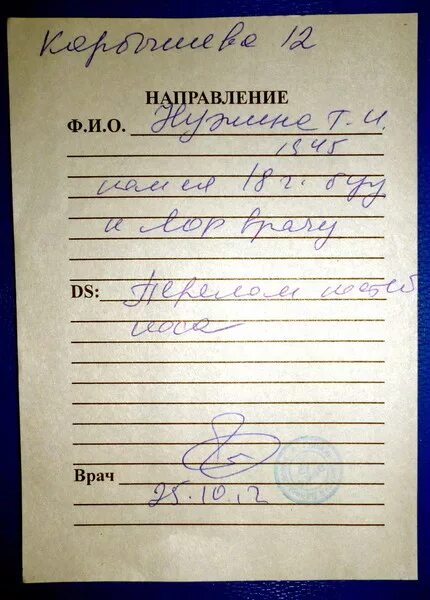 Карбышева 12
НАПРАВЛЕНИЕ
Ф.И.О. Нужина Т.И.
1945
18 г.
к Лор врачу
DS: Перелом костей
носа
Врач
25.10.12